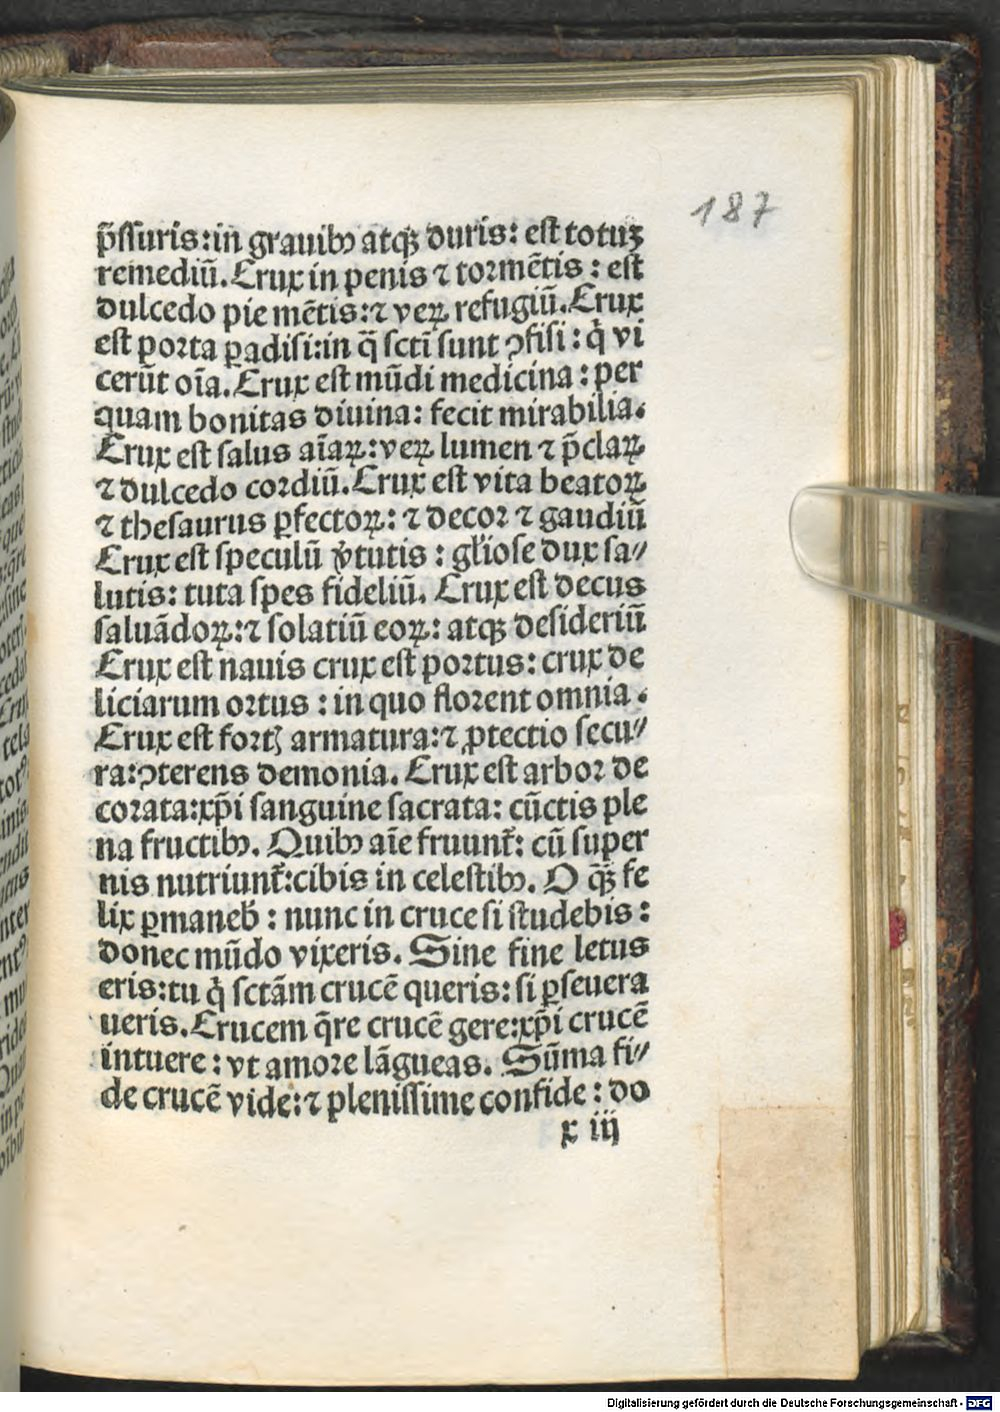 187
p̃ſſuris:in grauibꝰ atqꝫ duris: eſt totuꝫ
remediū. Crux in penis ⁊ toꝛmētis : eſt
dulcedo pie mētis:⁊ veꝝ refugiū. Crux
eſt poꝛta ꝑadiſi:in q̄ ſctī ſunt ꝯfiſi : q̇ vi
cerūt oīa. Crux eſt mūdi medicina : per
quam bonitas diuina: fecit mirabilia.
Crux eſt ſalus aīaꝝ: veꝝ lumen ⁊ p̄claꝝ
⁊ dulcedo coꝛdiū. Crux eſt vita beatoꝝ
⁊ theſaurus ꝑfectoꝝ: ⁊ decoꝛ ⁊ gaudiū
Crux eſt ſpeculū v̓tutis : gl̓ioſe dux ſa⸗
lutis: tuta ſpes fideliū. Crux eſt decus
ſaluādoꝝ:⁊ ſolatiū eoꝝ: atqꝫ deſideriū
Crux eſt nauis crux eſt poꝛtus: crux de
liciarum oꝛtus : in quo floꝛent omnia.
Crux eſt foꝛtꝭ armatura:⁊ ꝓtectio ſecu⸗
ra:ꝯterens demonia. Crux eſt arboꝛ de
coꝛata:xp̄i ſanguine ſacrata: cūctis ple
na fructibꝰ. Quibꝰ aīe fruunt̃: cū ſuper
nis nutriunt̃:cibis in celeſtibꝰ. O qꝫ̄ fe
lix ꝑmaneb̓ : nunc in cruce ſi ſtudebis :
donec mūdo vixeris. Sine fine letus
eris:tu q̇ ſctām crucē queris: ſi ꝑſeuera
ueris. Crucem q̄re crucē gere:xp̄i crucē
intuere : vt amoꝛe lāgueas. Sūma fi⸗
de crucē vide:⁊ pleniſſime confide : do
x iij
Digitalisierung gefördert durch die Deutsche Forschungsgemeinschaft - DFG